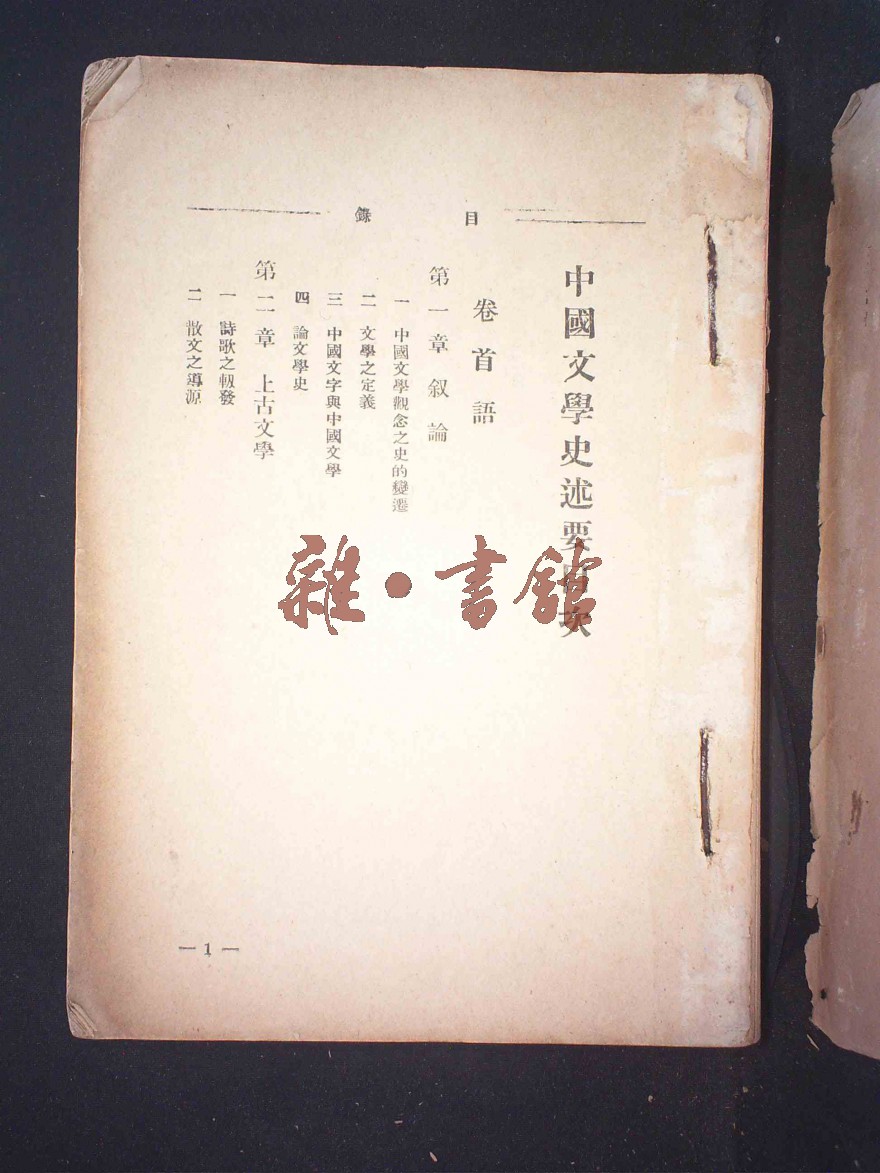 目錄
中國文學史述要目次
卷首語
第一章 叙論
一 中國文學觀念之史的變遷
二 文學之定義
三 中國文字與中國文學
四 論文學史
第二章 上古文學
一 詩歌之軔發
二 散文之導源
— 1 —
雜·書館